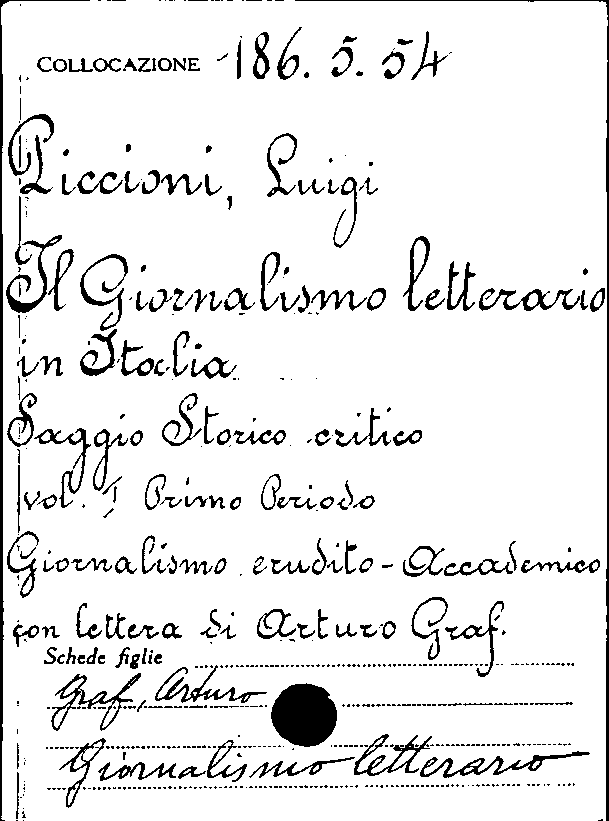 COLLOCAZIONE 186. 5. 54
Piccioni, Luigi
Il Giornalismo letterario
in Italia
Saggio Storico critico
vol. I Primo Periodo
Giornalismo erudito-Accademico
con lettera di Arturo Graf.
Schede figlie
Graf, Arturo
Giornalismo letterario